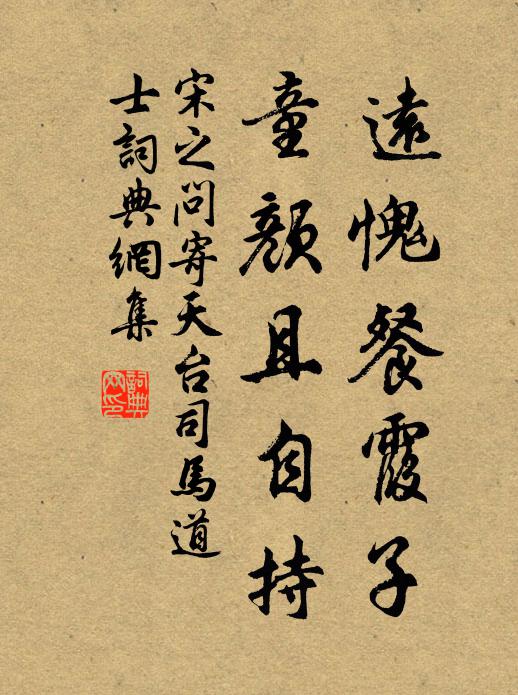 遠愧餐霞子
童顏且自持
宋之問寄天台司馬道
士詞典網集
詞典網印